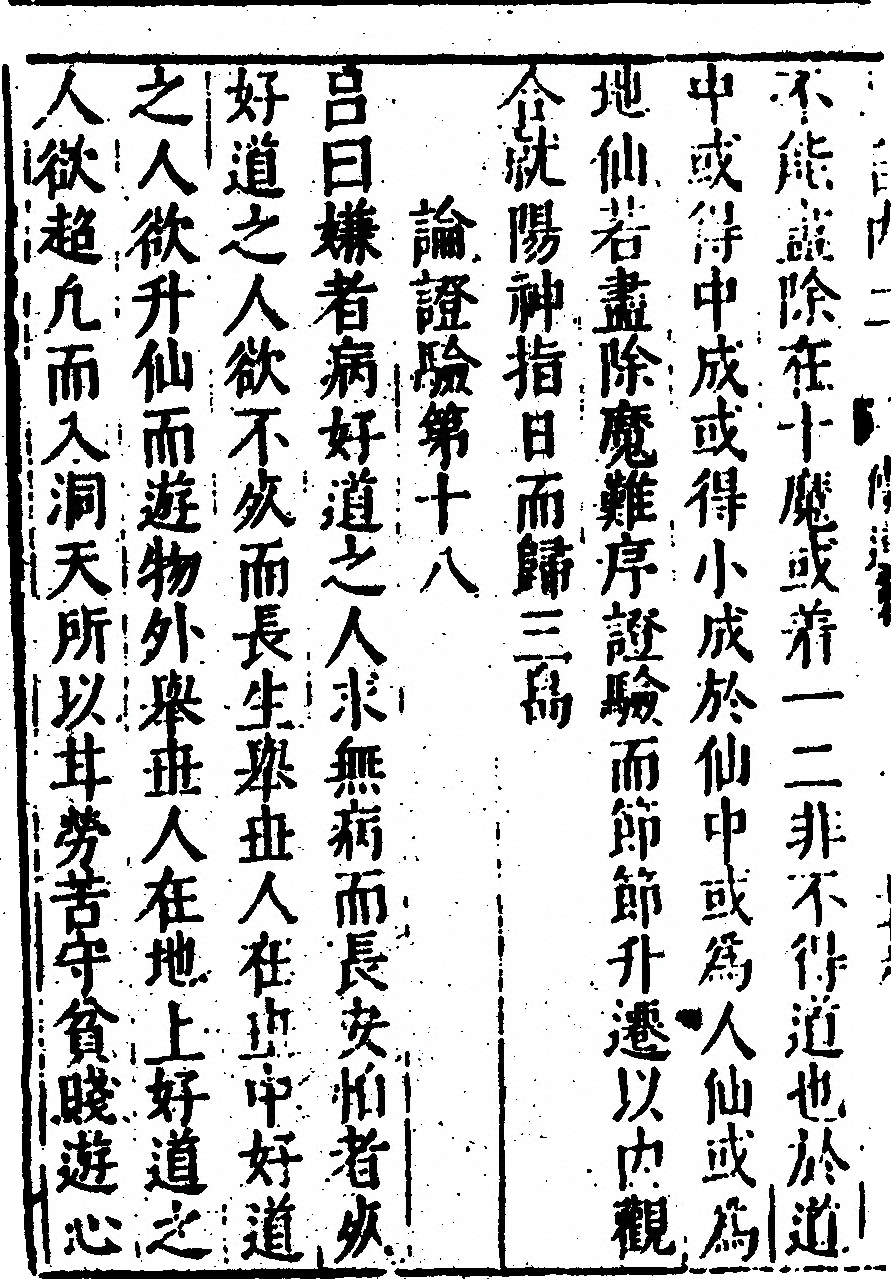 不能盡除在十魔或着一二非不得道也於道
中或得中成或得小成於仙中或為人仙或為
地仙若盡除魔難序證驗而節節升遷以內觀
合就陽神指日而歸三島
論證驗第十八
呂曰嫌者病好道之人求無病而長安怕者死
好道之人欲不死而長生舉世人在世中好道
之人欲升仙而遊物外舉世人在地上好道之
人欲超凡而入洞天所以甘勞苦守貧賤遊心